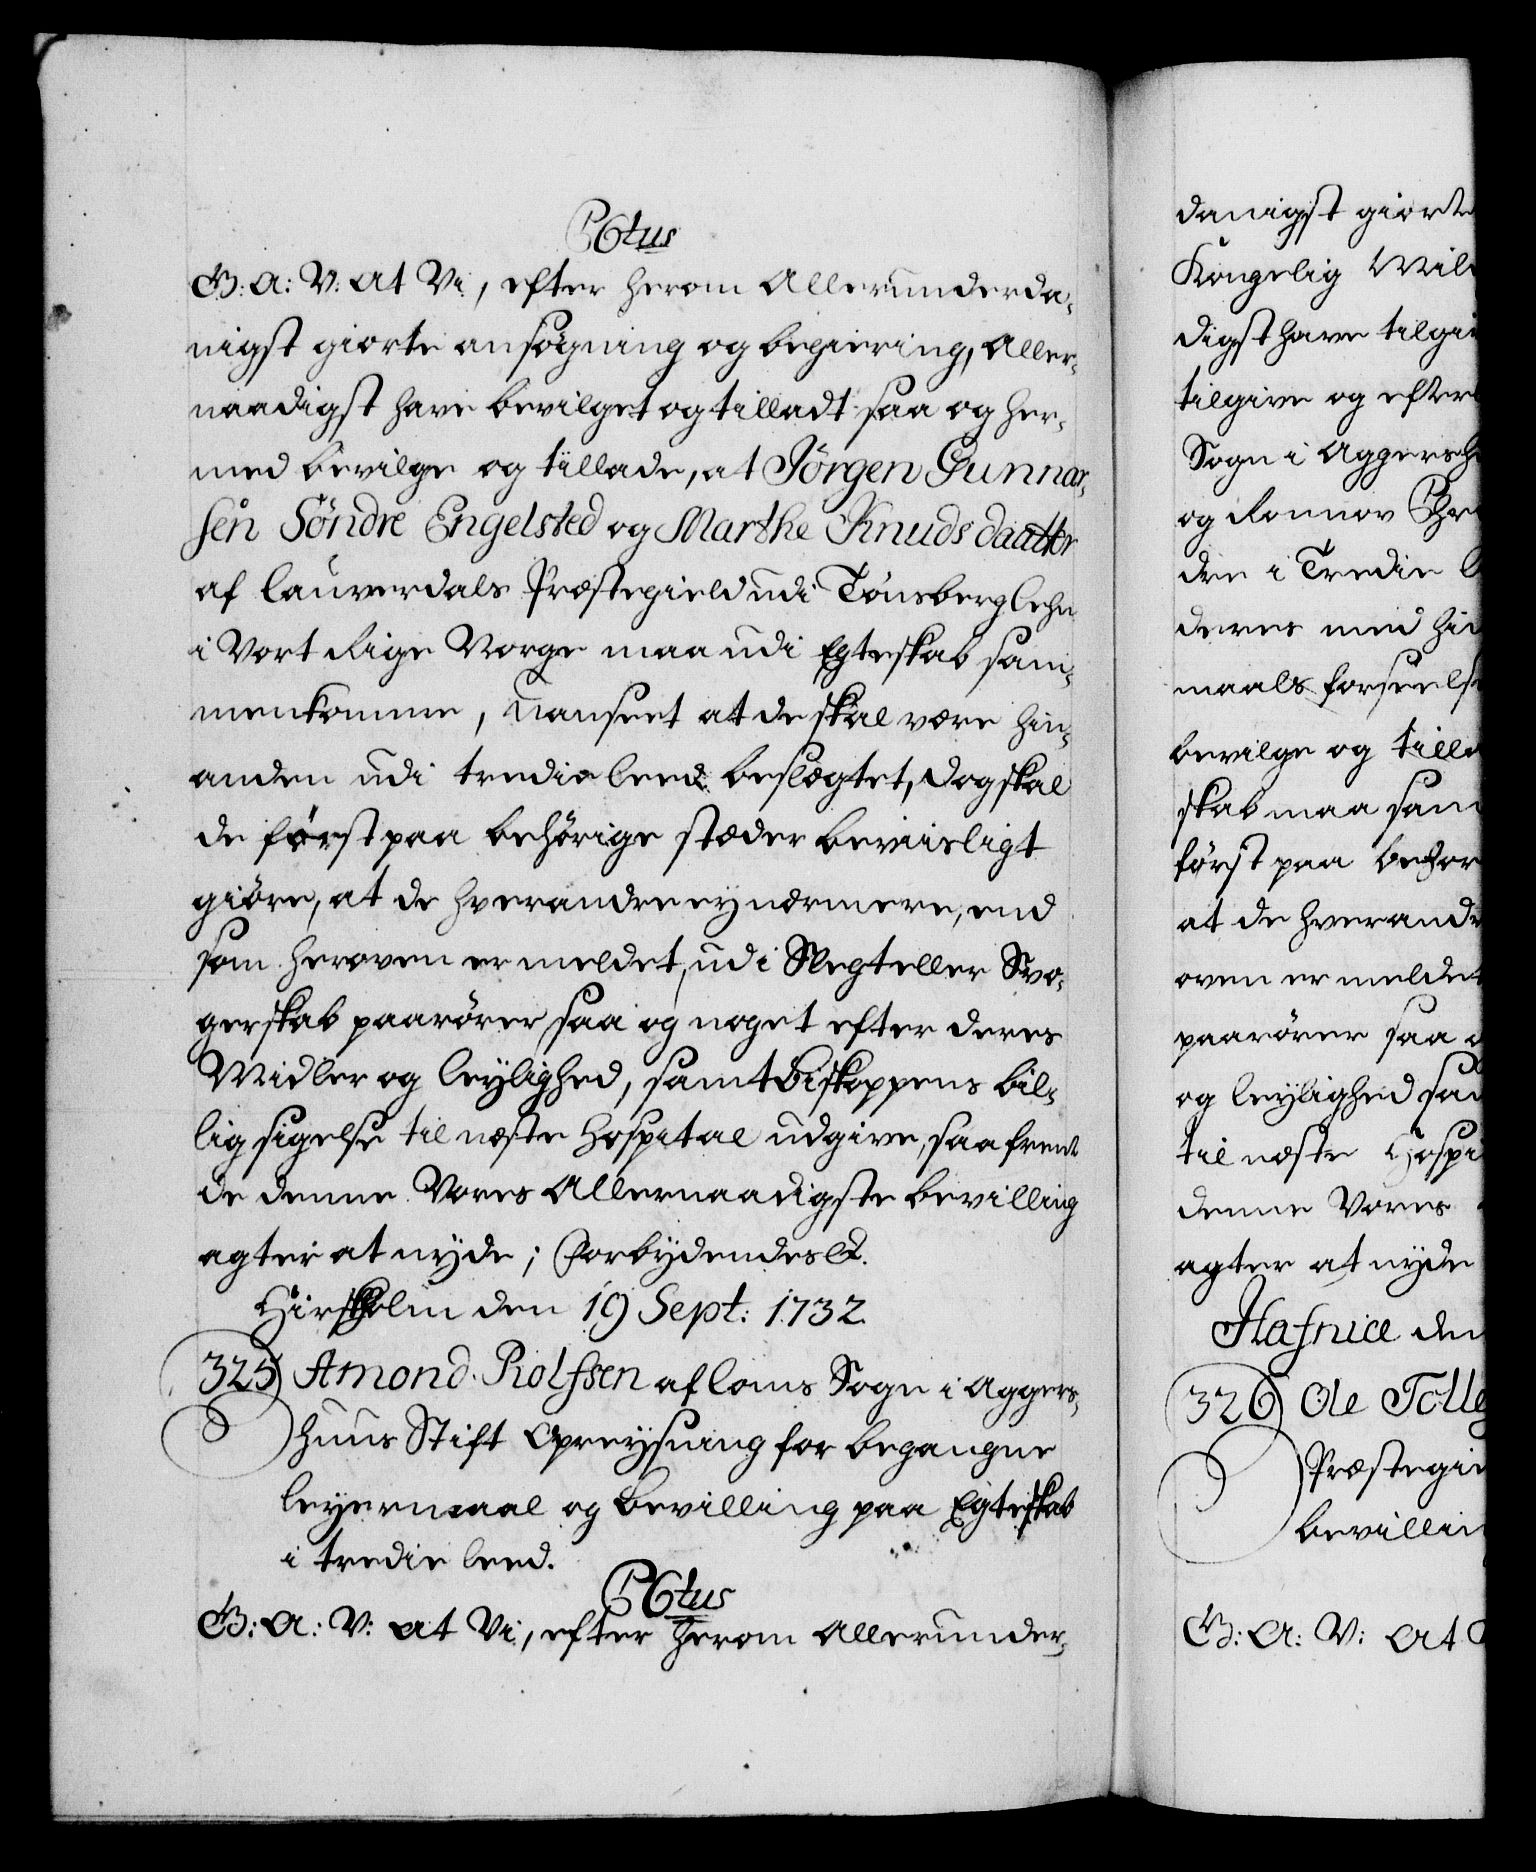 PCtus
G: A: V: at Vi, efter herom Allerunderda-
nigst giorte ansøgning og begiering, Aller-
naadigst have bevilget og tilladt saa og her-
med bevilge og tillade, at Jörgen Gunnar-
sen Söndre Engelsted og Marthe Knuds daatter
af Lauverdals Præstegield udi Tønsberg lehn
i Vort Rige Norge maa udi Egteskab sam-
menkomme, Uanseet at de skal være hin-
anden udi tredie leed beslægtet, dog skal
de først paa behørige stæder beviisligt
giøre, at de hverandre ey nærmere, end
som heroven er meldet, udi Slegt eller Svo-
gerskab paarører saa og noget efter deres
Midler og leylighed, samt Biskoppens bil-
lig sigelse til næste Hospital udgive, saafremt
de denne Vores Allernaadigste bevilling
agter at nyde; Forbydendes &.
Hirsholm den 19 Sept: 1732.
325) Amond Rolfssen af Loms Sogn i Aggers-
huus Stift Opreysning for begangne
leyermaal og bevilling paa Egteskab
i tredie leed.
PCtus
G: A: V: at Vi, efter herom Allerunder-
danigst giorte
Kongelig Mil
digst have tilgi
tilgive og efter
Sogn i Aggersh
og Ronnov
dre i Tredie
deres med hin
maals forseelse
bevilge og tilla
skab maa sam
først paa behør
at de hverandr
oven er meldet
paarører saa
og leylighed sam
til næste Hospi
denne Vores
agter at nyde
Hafniæ den
326) Ole Tolle
Præstegi
bevillin
G: A: V: at